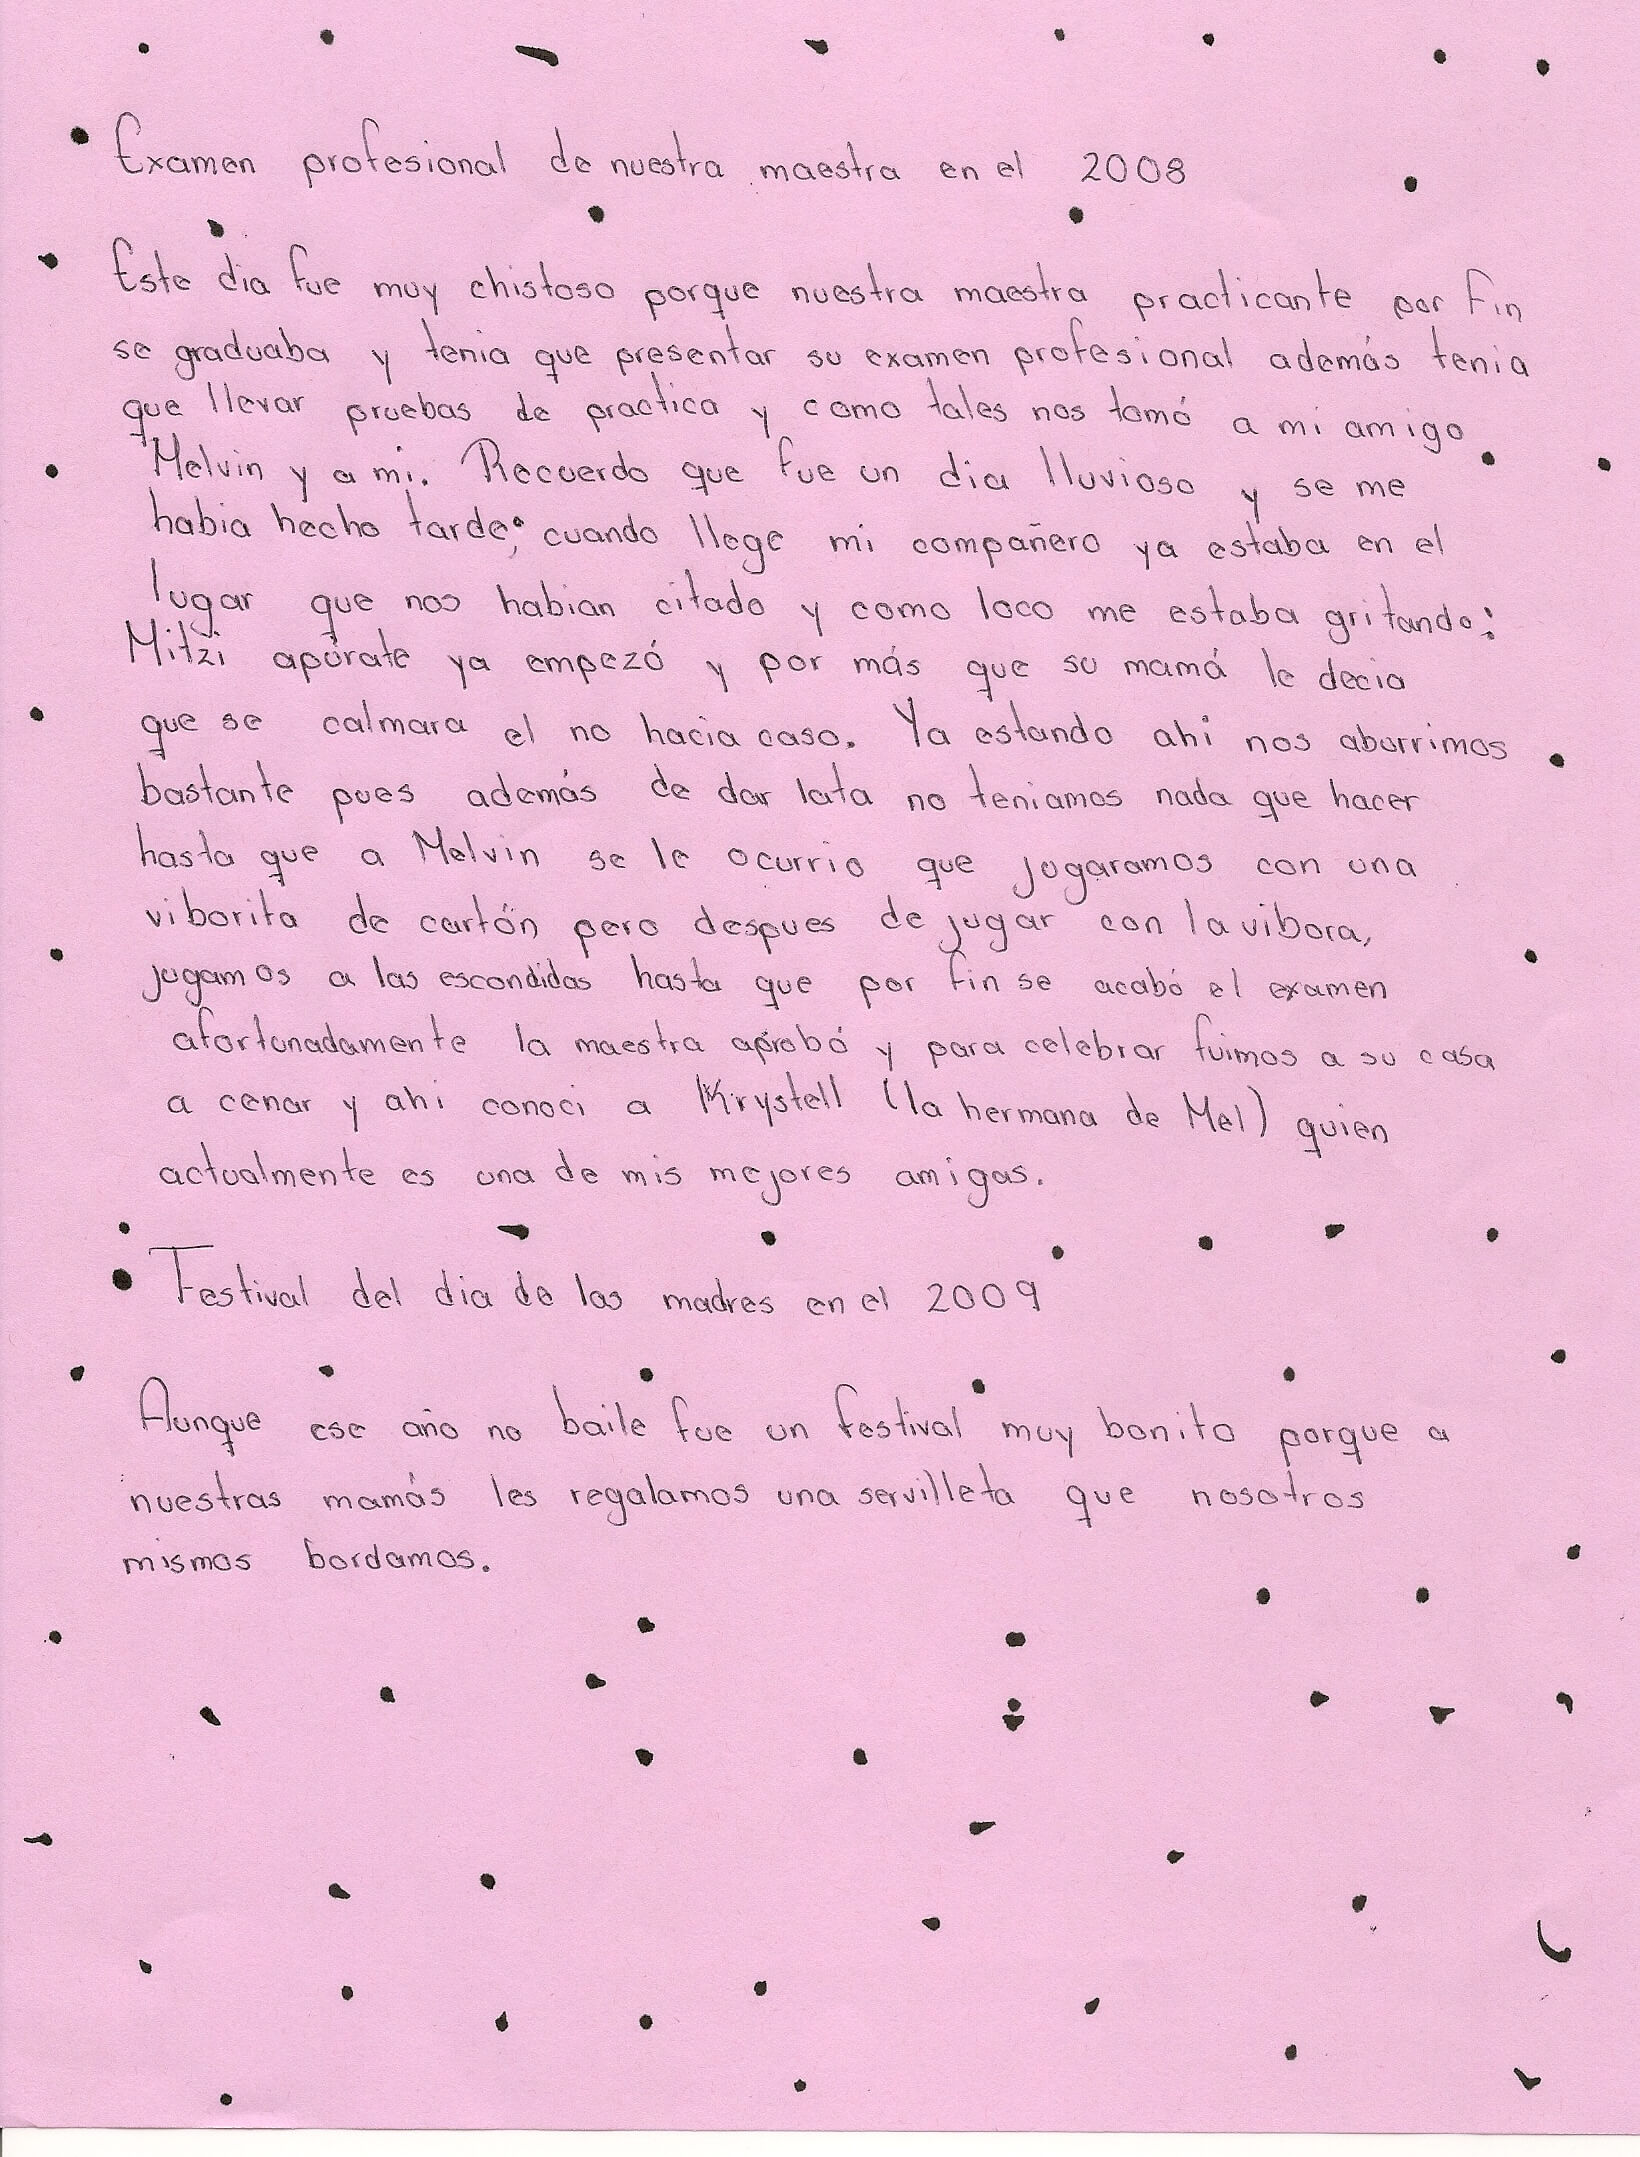 Examen profesional de nuestra maestra en el 2008
Este dia fue muy chistoso porque nuestra maestra practicante por fin
se graduaba y tenia que presentar su examen profesional además tenia
que llevar pruebas de practica y como tales nos tomó a mi amigo
Melvin y a mi. Recuerdo que fue un dia lluvioso y se me
habia hecho tarde; cuando llege mi compañero ya estaba en el
lugar que nos habian citado y como loco me estaba gritando:
Mitzi apúrate ya empezó y por más que su mamá le decia
que se calmara el no hacia caso. Ya estando ahi nos aburrimos
bastante pues además de dar lata no teniamos nada que hacer
hasta que a Melvin se le ocurrio que jugaramos con una
viborita de cartón pero despues de jugar con la vibora,
jugamos a las escondidas hasta que por fin se acabó el examen
afortunadamente la maestra aprobó y para celebrar fuimos a su casa
a cenar y ahi conoci a Krystell (la hermana de Mel) quien
actualmente es una de mis mejores amigas.
Festival del dia de las madres en el 2009
Aunque ese año no baile fue un festival muy bonito porque a
nuestras mamás les regalamos una servilleta que nosotros
mismos bordamos.